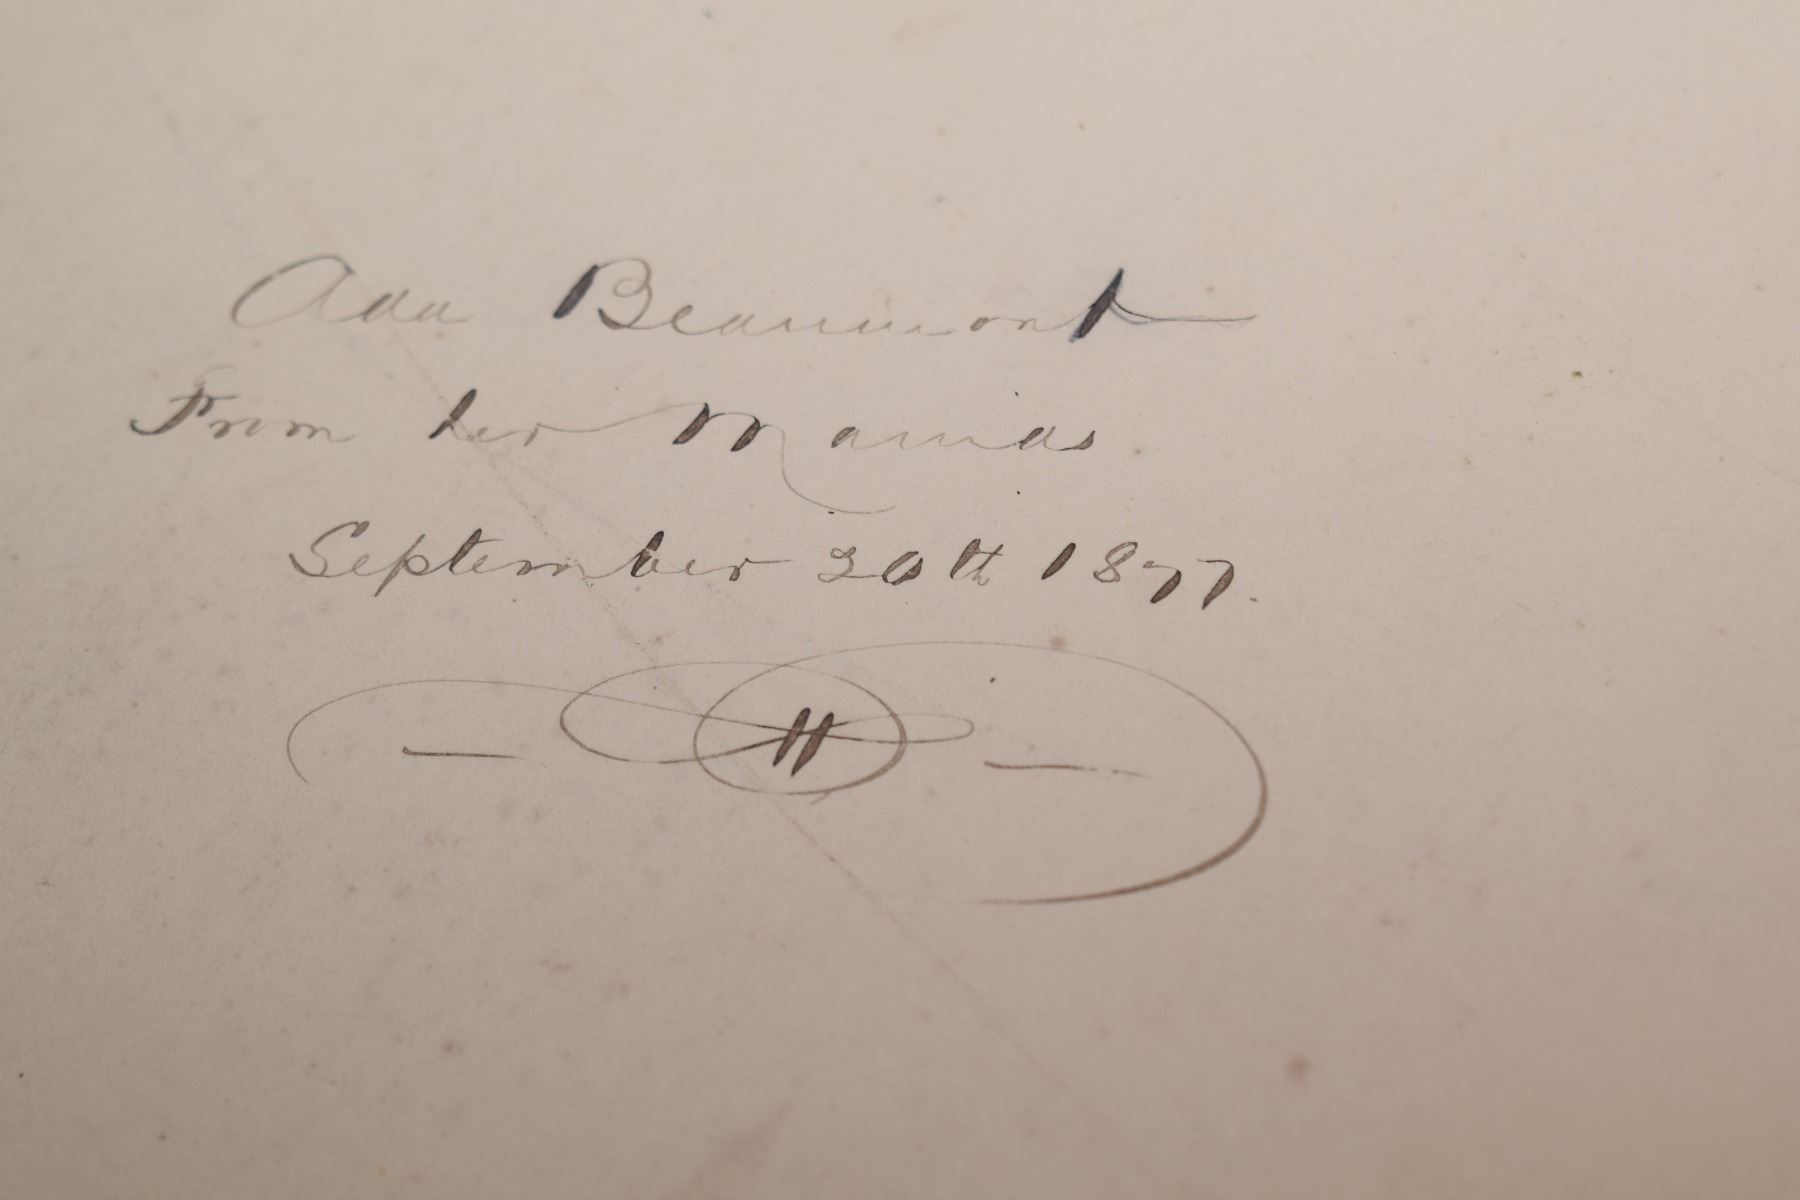 Ada Beaumont
From her Mamas
September 20th 1877.